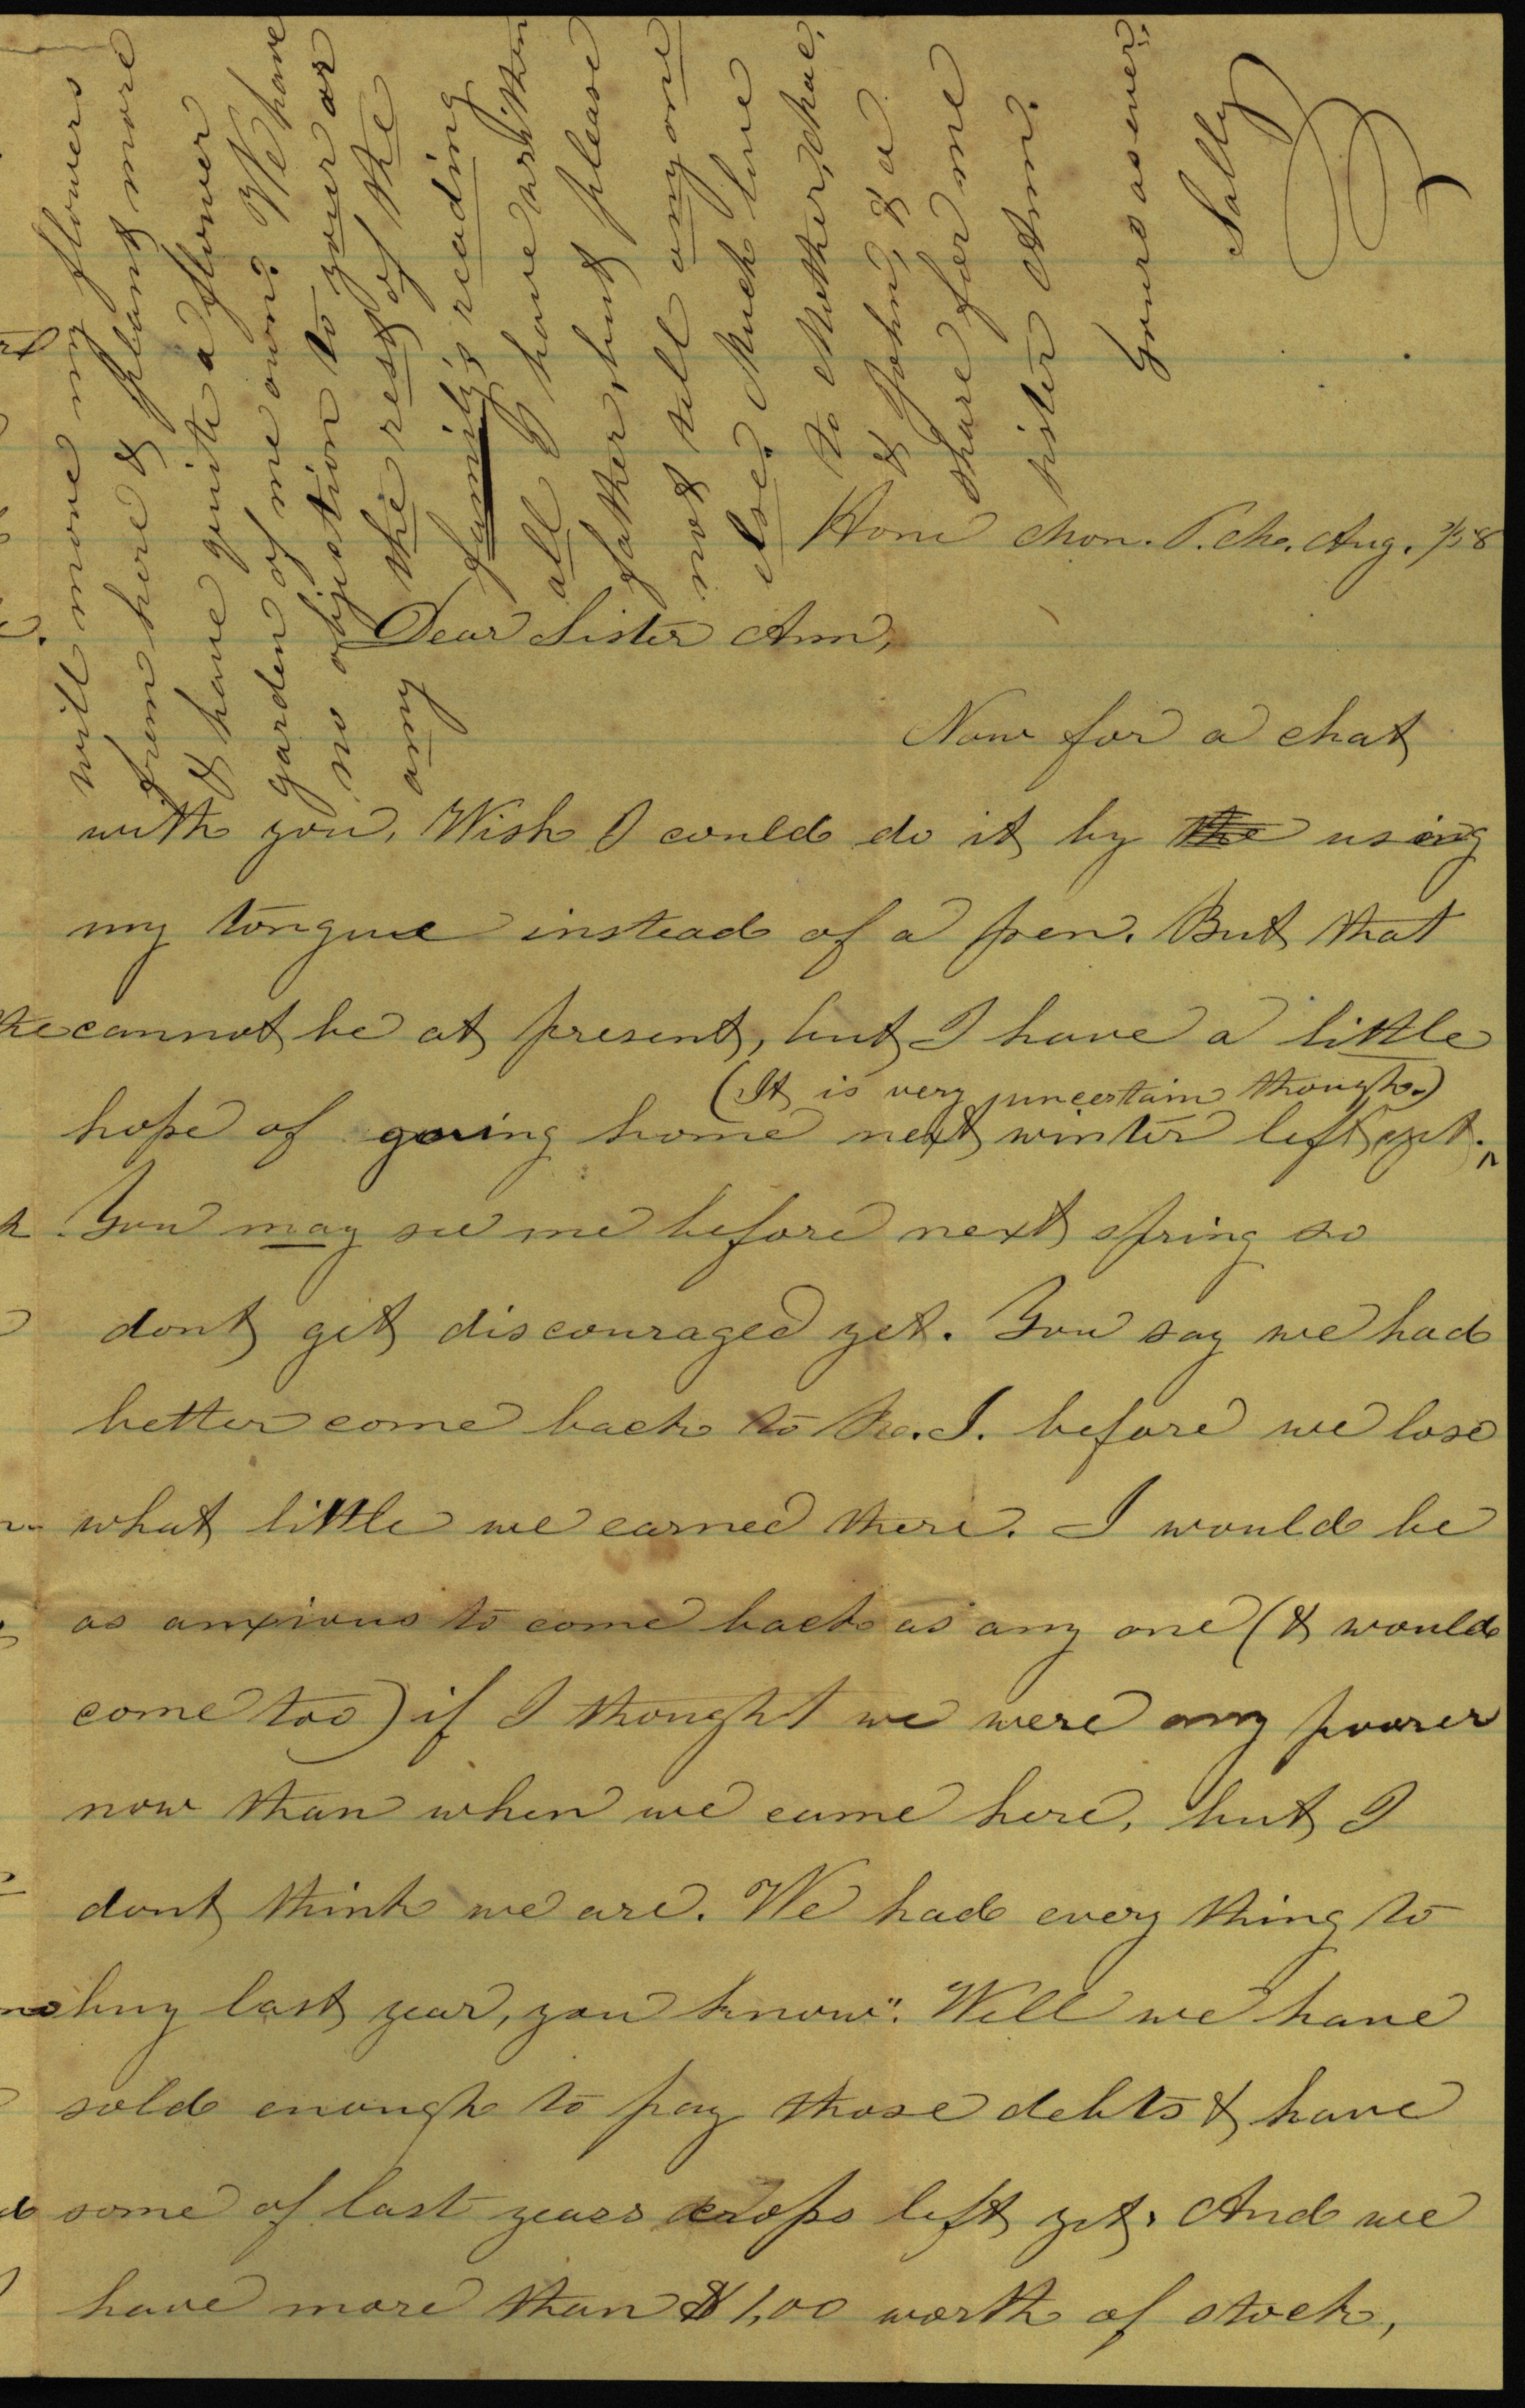 Home Mon. P.M. Aug. 2/58
Dear Sister Ann,
Now for a chat
with you, Wish I could do it by the using
my tongue instead of a pen. But that
cannot be at present, but I have a little
(It is very uncertain though.)
hope of going home next winter left yet.
You may see me before next spring so
dont get discouraged yet. You say we had
better come back to R.I. before we lose
what little we earned there. I would be
as anxious to come back as any one (& would
come too) if I thought we were any poorer
now than when we came here, but I
dont think we are. We had every thing to
buy last year, you know". Well we have
sold enough to pay those debts & have
some of last years crops left yet. And we
have more than $1,00 worth of stock,
will move my flowers
from here & plant more
& have quite a flower
garden of me own. We have
no objection to your or
any the rest of the
family's reading
all I have written
father, but please
not tell anyone
else. Much love
to Mother, Mae,
& John, & a
share for me
sister Ann.
Yours as ever,
Sally